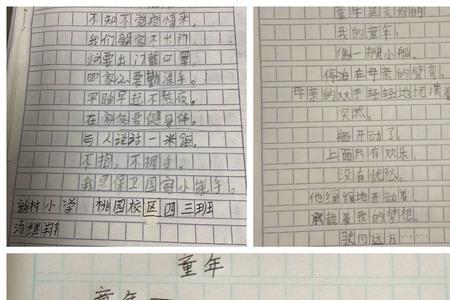 不知不觉疫情来,
我们躲家不出门
出门戴口罩
回家必要勤洗手。
早睡早起不熬夜。
在家多健身体。
与人谈话一米距
不抱,不握手。
我是保卫国家小能手。
新村小学 桃园校区四三班
童年是美好的
我的童年,
像一艘小船,
停泊在母亲的臂弯,
母亲的双手轻轻地抚摸着
突然,
船开动了,
上面只有欢乐,
没有忧愁。
他缓缓地开动着,
承载着我的梦想,
驶向远方……
童年
童年